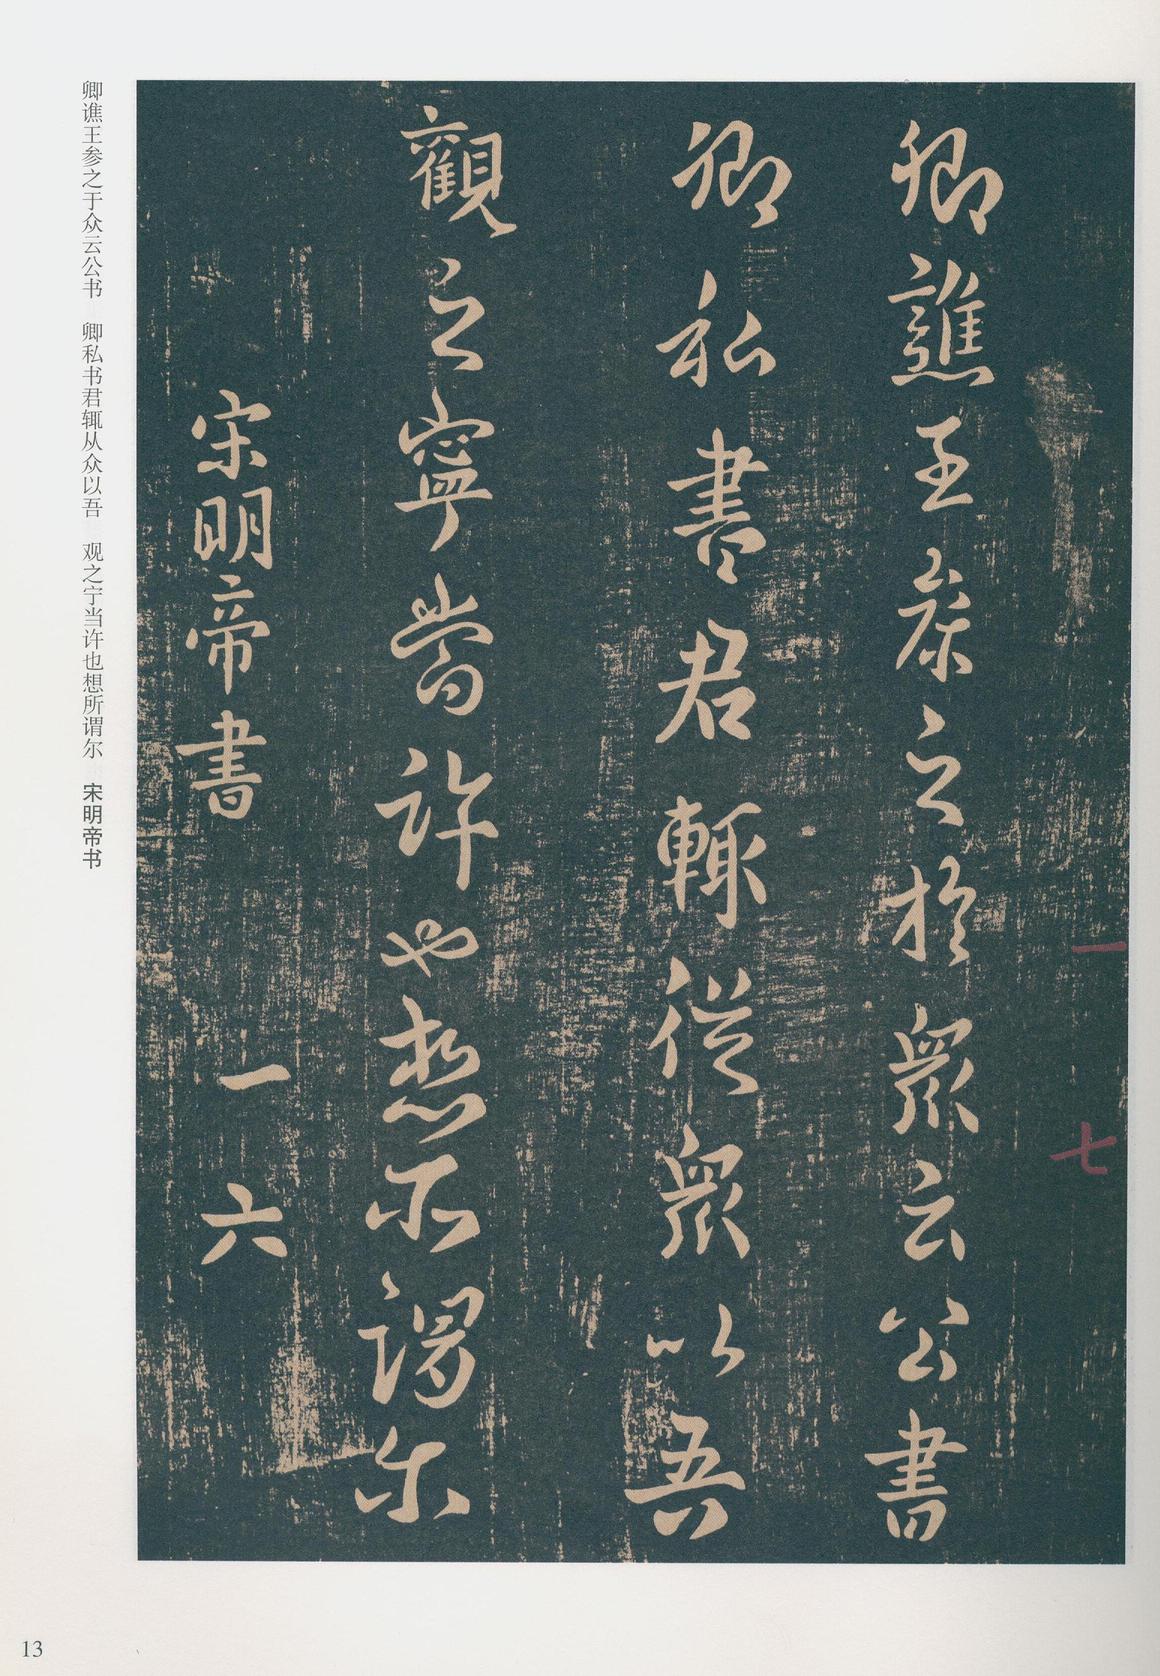 卿譙王參之於眾云公書
卿私書君輒從眾以吾
觀之寧當許也想所謂尔
宋明帝書 一 六
一 七
卿谯王参之于众云公书 卿私书君辄从众以吾 观之宁当许也想所谓尔 宋明帝书
13